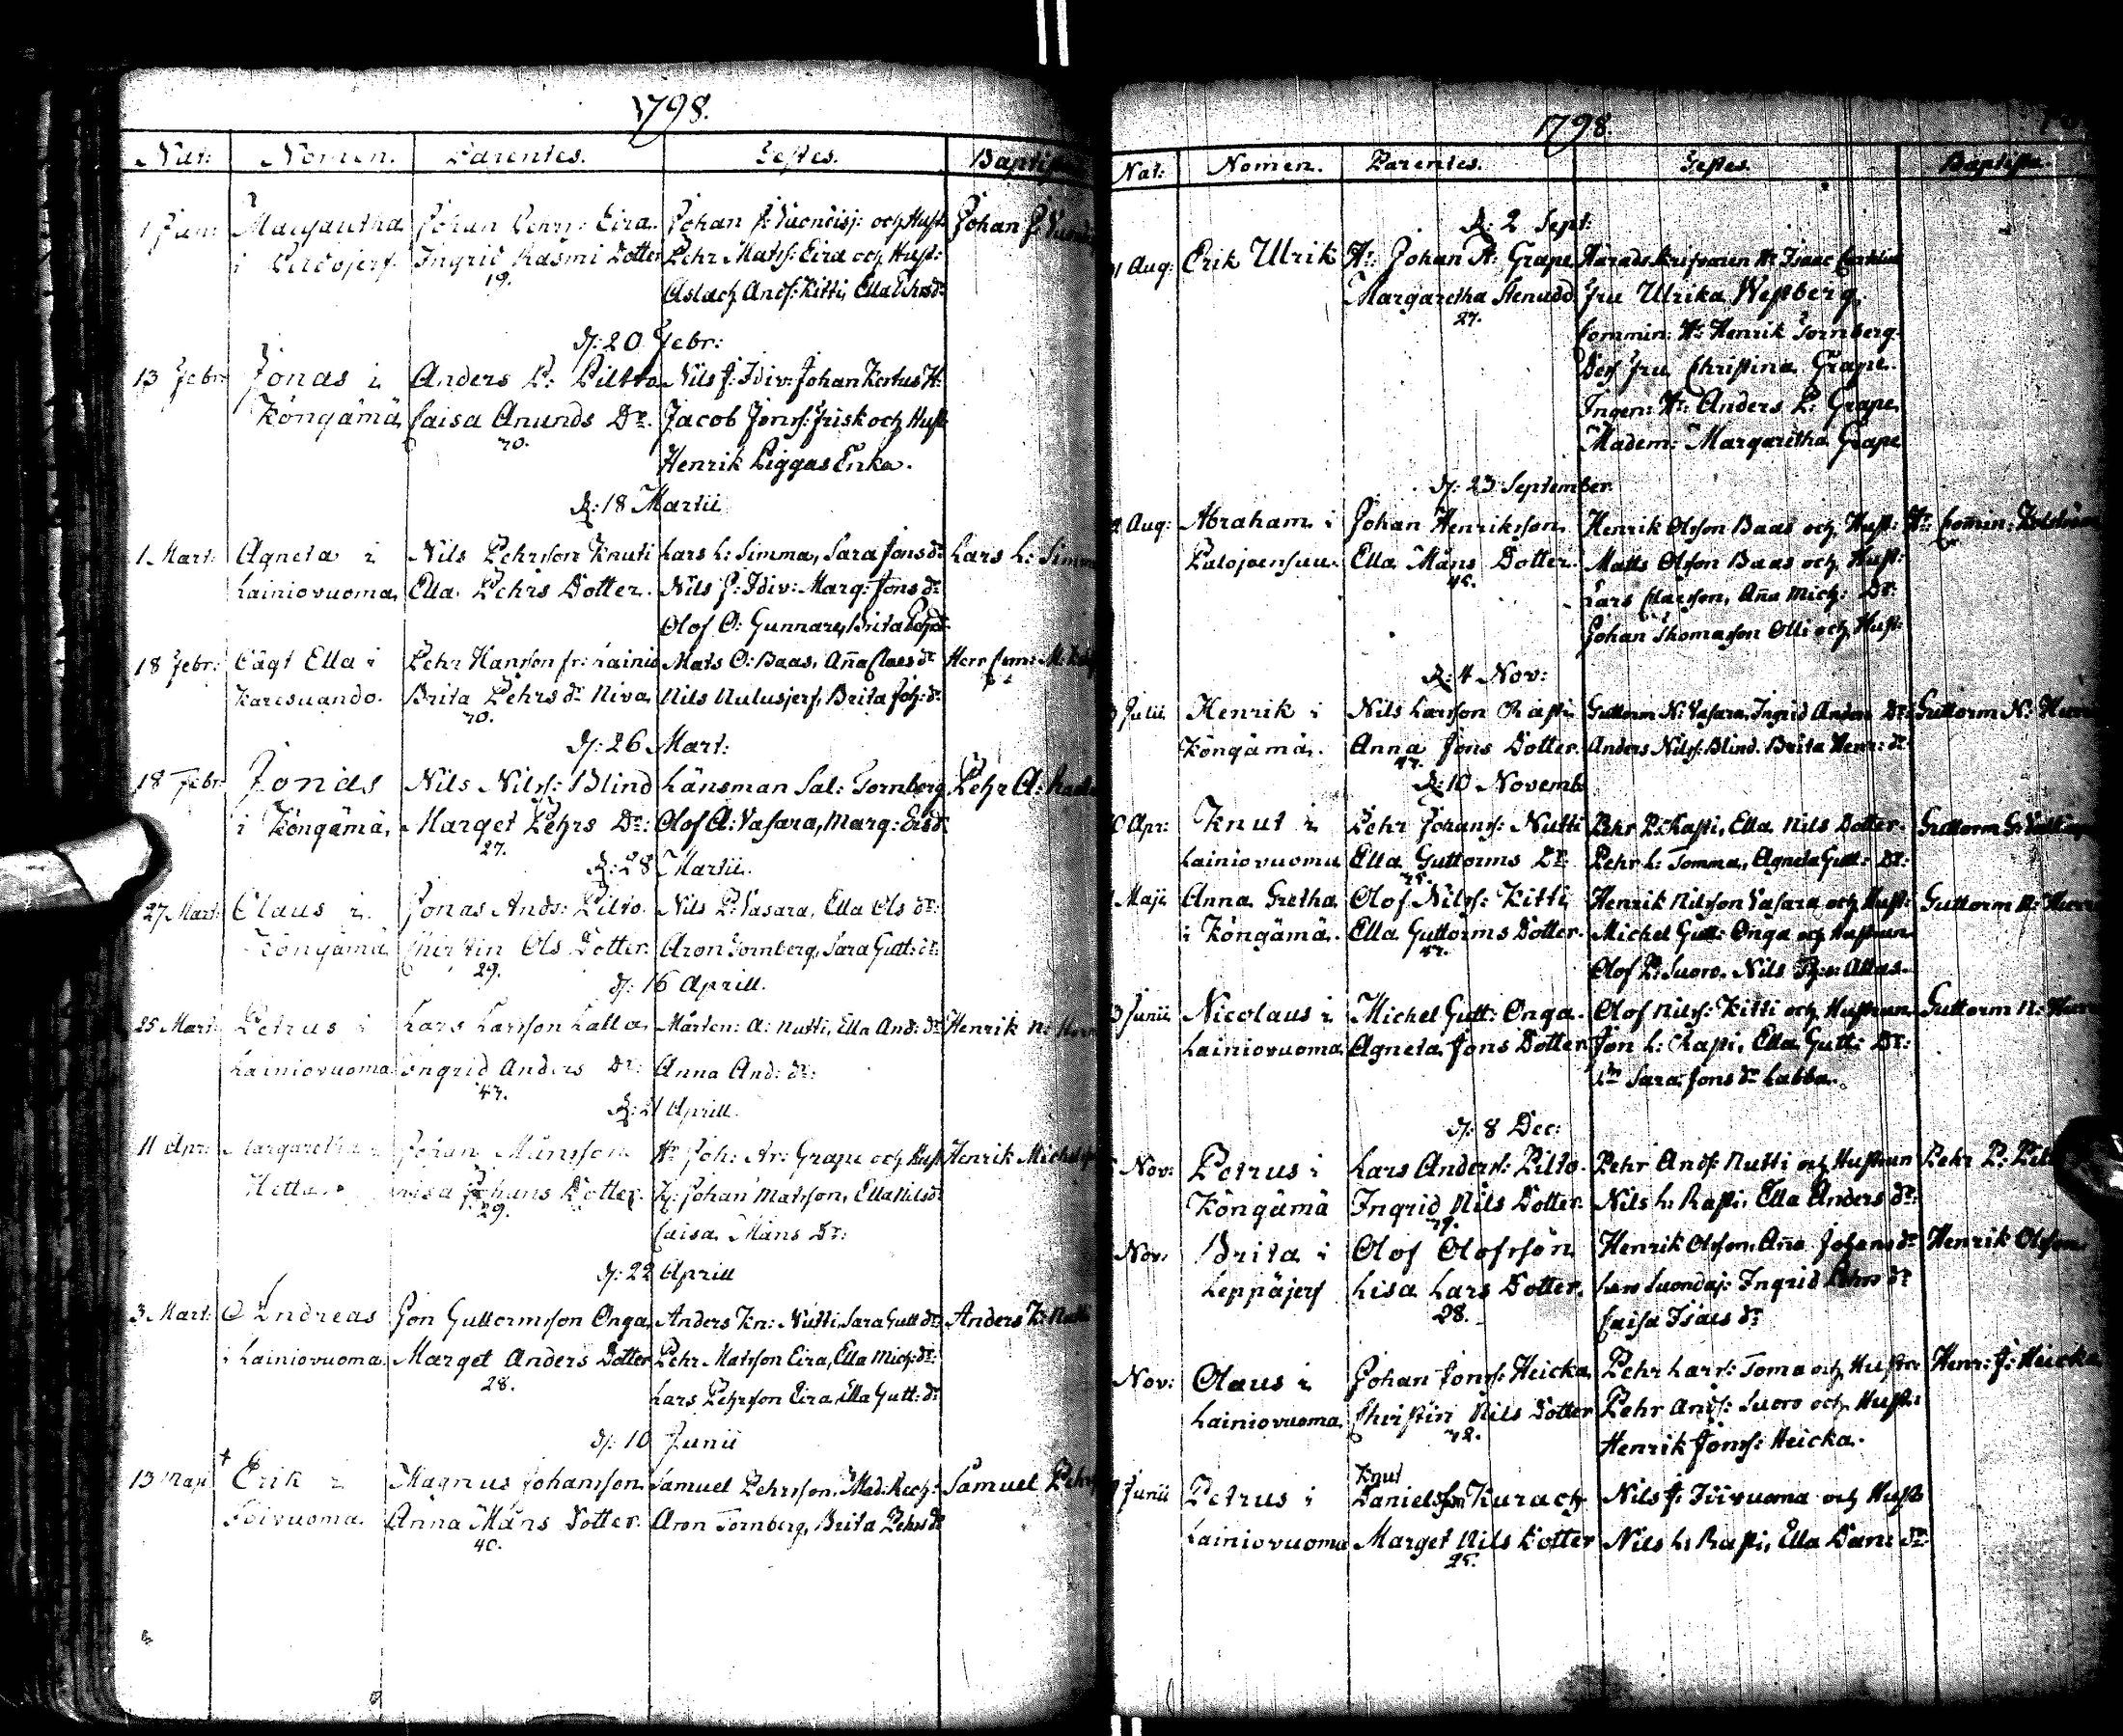 1798.
Nat: Nomen. Parentes. Testes. Baptista
Margaretha Johan Eira. Johan och Hust: Johan
i Ingrid Rasmi Dotter Pehr Matss: Eira och Hust:
19. Aslach Ands: Kitti, Ella
d: 20 Febr:
13 Febr: Jonas i Anders P: Piltto Nils J: Idiv: Johan
Köngämä Caisa Anunds Dr. Jacob Jonss: Frisk och Hust
40. Henrik Piggas Enka.
d: 18 Martii
1 Mart: Agneta i Nils Pehrsson Knuti Lars L: Simma, Sara Jons dr Lars L: Simma
Lainiovuoma, Ella Pehrs Dotter. Nils J: Idiv: Marg: Jons dr
Olof O: Gunnare, Brita
18 Febr: Ella i Pehr Hansson fr: Lainio Mats O: Baas, Aña Claes dr Herr
Karesuando. Brita Pehrs dr Niva Nils Nulusjerf, Brita Joh: dr
40.
d: 26 Mart:
18 Febr Jonas Nils Nilss: Blind Länsman Sal: Tornberg Pehr A:
i Köngämä, Marget Pehrs Dr: Olof A: Vasara, Marg:
27.
d: 28 Martii.
27 Mart: Claus i Jonas Ands: Pilto. Nils P: Vasara, Ella Ols dr:
Köngämä Christin Ols Dotter. Aron Tornberg, Sara Gutt: dr:
29.
d: 16 Aprill.
25 Mart: Petrus i Lars Larsson Labba. Mårten: A: Nutti, Ella And: dr: Henrik N:
Lainiovuoma Ingrid Anders Dr: Anna And: dr:
47.
d: 21 Aprill.
11 Apr: Margaretha i Johan Månsson Hr Joh: Ar: Grape och Hust Henrik
Hetta. Johans Dotter. Johan Matsson, Ella Nils dr
29. Caisa Måns Dr:
d: 22 Aprill
3 Mart: Andreas Jon Guttormsson Onga, Anders Kn: Nutti, Sara Gutt dr: Anders K: Nutti
i Lainiovuoma, Marget Anders Dotter Pehr Matsson Eira, Ella Mich: dr:
28. Lars Pehrsson Eira, Ella Gutt: dr
d: 10 Junii
13 Maji + Erik i Magnus Johansson Samuel Pehrsson, Samuel
Idivuoma. Anna Måns Dotter. Aron Tornberg, Brita Pehrs dr
40.
1798.
Nat: Nomen. Parentes. Testes. Baptista
d: 2 Sept:
Aug: Erik Ulrik Hr: Johan A: Grape Häradsskrifvaren Hr Isaac
Margaretha Stenudd. Fru Ulrika Westberg.
27. Commin: Hr: Henrik Tornberg.
Dess Fru Christina Grape.
Ingen: Hr: Anders P: Grape.
Madem: Margaretha Grape
d: 23 September.
Aug: Abraham i Johan Henriksson. Henrik Olsson Baas och Hust: Hr: Comin:
Palojoensuu. Ella Måns Dotter. Matts Olsson Baas och Hust:
45. Lars Claesson, Aña Mich: Dr:
Johan Thomasson Olli och Hust:
d: 4 Nov:
Julii Henrik i Nils Larsson Rasti Guttorm N: Vasara, Ingrid Anders Dr: Guttorm N:
Köngämä. Anna Jons Dotter. Anders Nilss: Blind. Brita Henr: dr
47.
d: 10 Novemb
Apr: Knut i Pehr Johanss: Nutti Pehr P: Rasti, Ella Nils Dotter. Guttorm
Lainiovuoma Ella Guttorms Dr: Pehr L: Tomma, Agneta Gutt: Dr:
45.
Maji Anna Gretha Olof Nilss: Kitti Henrik Nilsson Vasara och Hust: Guttorm N:
i Köngämä. Ella Guttorms Dotter. Michel Gutt: Onga och Hustrun
47. Olof P: Suoro, Nils
Junii Nicolaus i Michel Gutt: Onga. Olof Nilss: Kitti och Hustrun Guttorm N:
Lainiovuoma Agneta Jons Dotter Jon L: Rasti, Ella Gutt: Dr:
Sara Jons dr Labba.
d: 8 Dec:
Nov: Petrus i Lars Anderss: Pilto. Pehr Ands: Nutti och Hustrun Pehr P:
Köngämä Ingrid Nils Dotter. Nils L: Rasti, Ella Anders dr:
49.
Nov. Brita i Olof Olofsson Henrik Olsson, Aña Johans dr Henrik Olsson
Leppäjerf Lisa Lars Dotter. Ingrid Pehrs dr
28. Caisa Isacs dr
Nov: Olaus i Johan Jonss: Heicka Pehr Larss: Toma och Hustru Henr: J: Heicka
Lainiovuoma Christin Nils Dotter Pehr Ands: Suoro och Hust:
42. Henrik Jonss: Heicka.
Knut
Junii Petrus i Danielsson Kurach Nils J: Idivuoma och Hust
Lainiovuoma Marget Nils Dotter Nils L: Rasti, Ella Dan: dr
25.